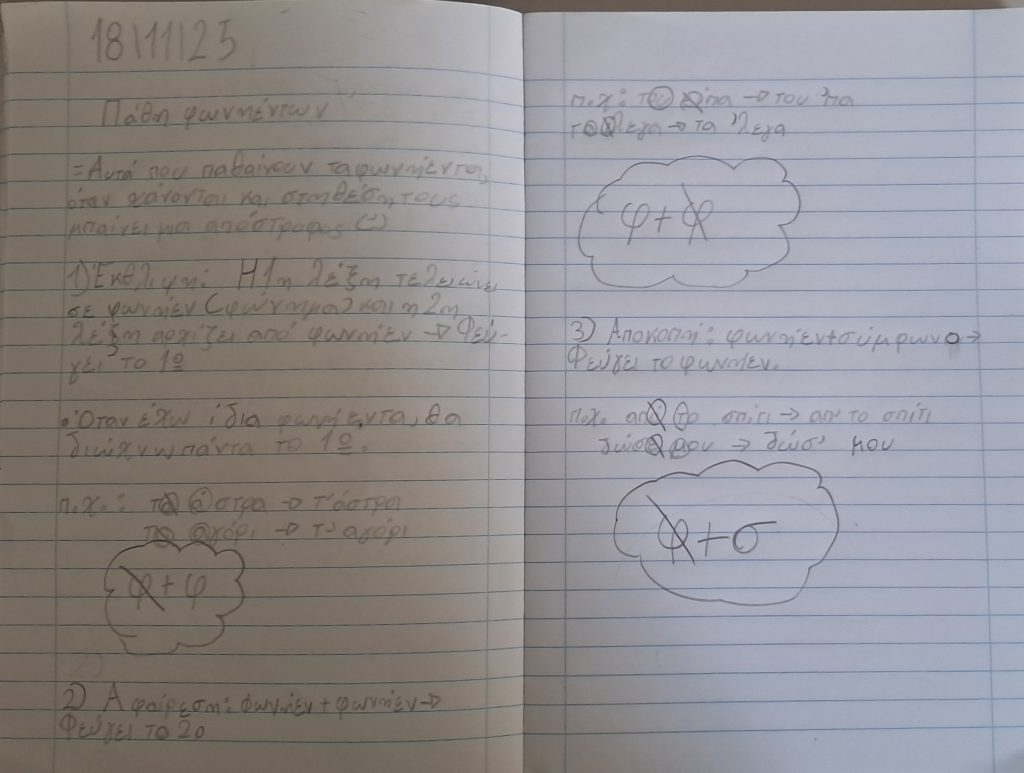 18|11|25
Πάθη φωνηέντων
=Αυτά που παθαίνουν τα φωνήεντα,
όταν χάνονται και στη θέση τους
μπαίνει μια απόστροφος (')
1) Έκθλιψη: Η 1η λέξη τελειώνει
σε φωνήεν (φώνημα) και η 2η
λέξη αρχίζει από φωνήεν → Φεύ-
γει το 1ο
• Όταν έχω ίδια φωνήεντα, θα
διώχνω πάντα το 1ο.
π.χ.: τα άστρα → τ' άστρα
το αγόρι → τ' αγόρι
φ + φ
2) Αφαίρεση: φωνήεν + φωνήεν →
Φεύγει το 2ο
π.χ: του είπα → του 'πα
τα έλεγα → τα 'λεγα
φ + φ
3) Αποκοπή: φωνήεν+σύμφωνο →
Φεύγει το φωνήεν.
π.χ. από το σπίτι → απ' το σπίτι
δώσε μου → δώσ' μου
φ + σ